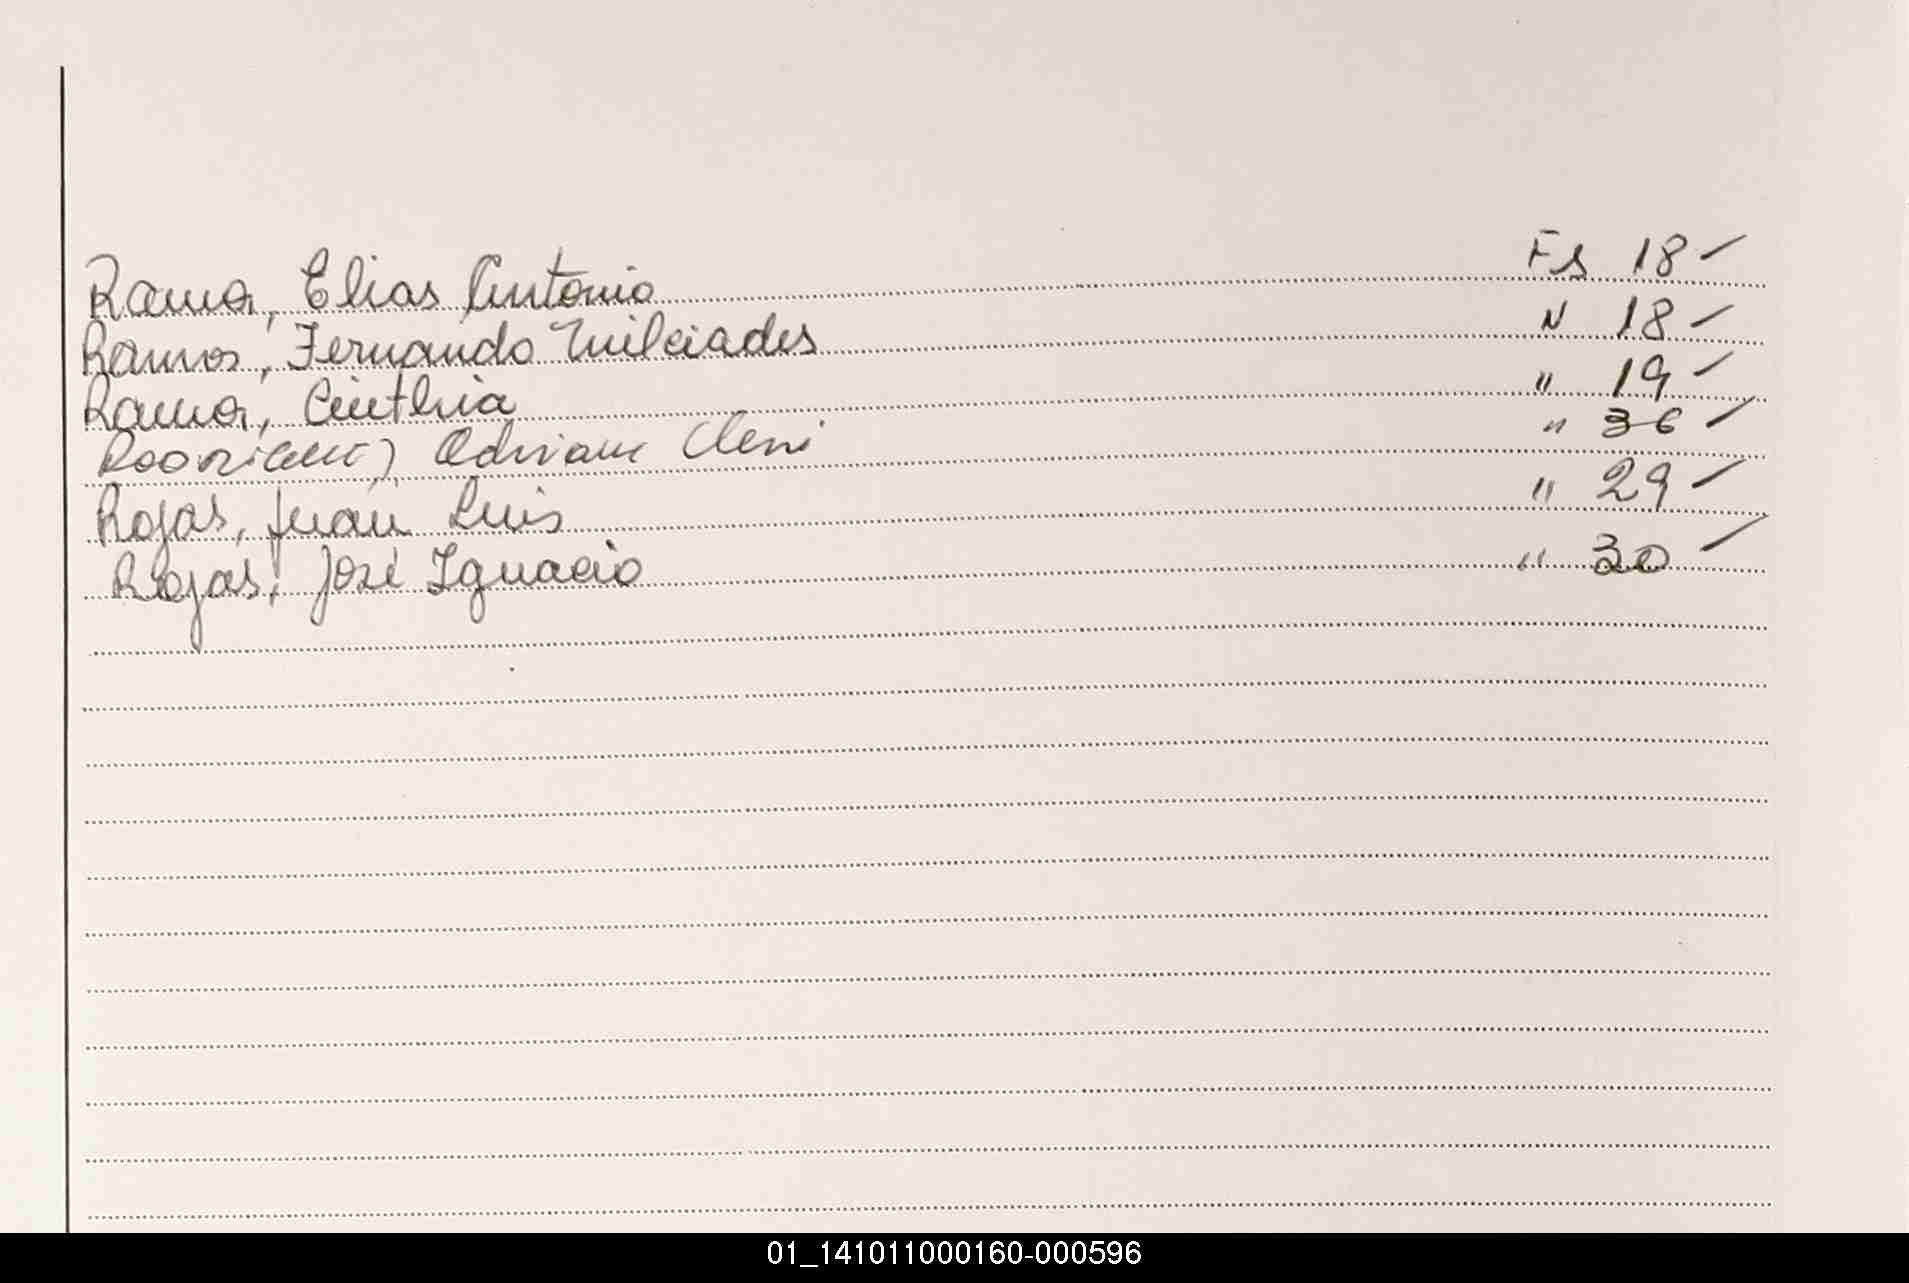 Ramos, Elias Antonio Fs 18
Ramos, Fernando Milciades " 18
Ramos, Cinthia " 19
Rodriguez, Adriana " 36
Rojas, Juan Luis " 29
Rojas, José Ignacio " 30
01_141011000160-000596